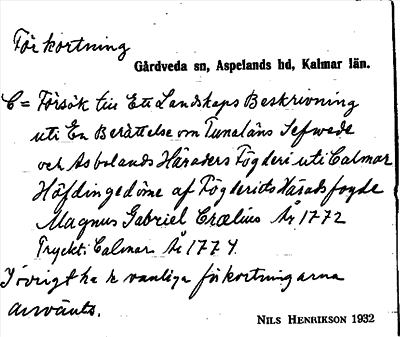 Förkortning
Gårdveda sn, Aspelands hd, Kalmar län.
C = Försök till Ett Landskaps Beskrivning
uti En Berättelse om Tunaläns Sefwede
och Asbolands Häraders Fögderi uti Calmar
Höfdingedöme af Fögderiets Häradsfogde
Magnus Gabriel Crælius År 1772
Tryckt: Calmar År 1774.
I övrigt ha de vanliga förkortningarna
använts.
NILS HENRIKSON 1932